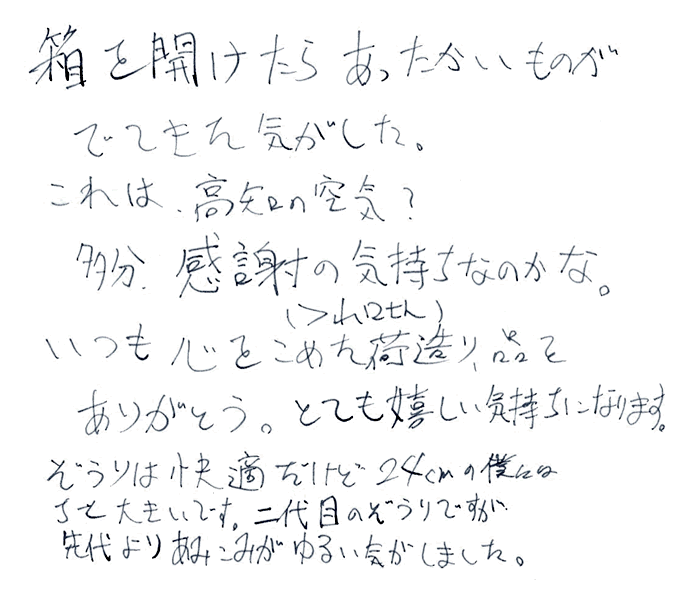 箱を開けたらあったかいものが
でてきた気がした。
これは、高知の空気?
多分、感謝の気持ちなのかな。
いつも心をこめた荷造り、品を
ありがとう。とても嬉しい気持ちになります。
ぞうりは快適だけど24cmの僕には
ちと大きいです。二代目のぞうりですが
先代よりあみこみがゆるい気がしました。